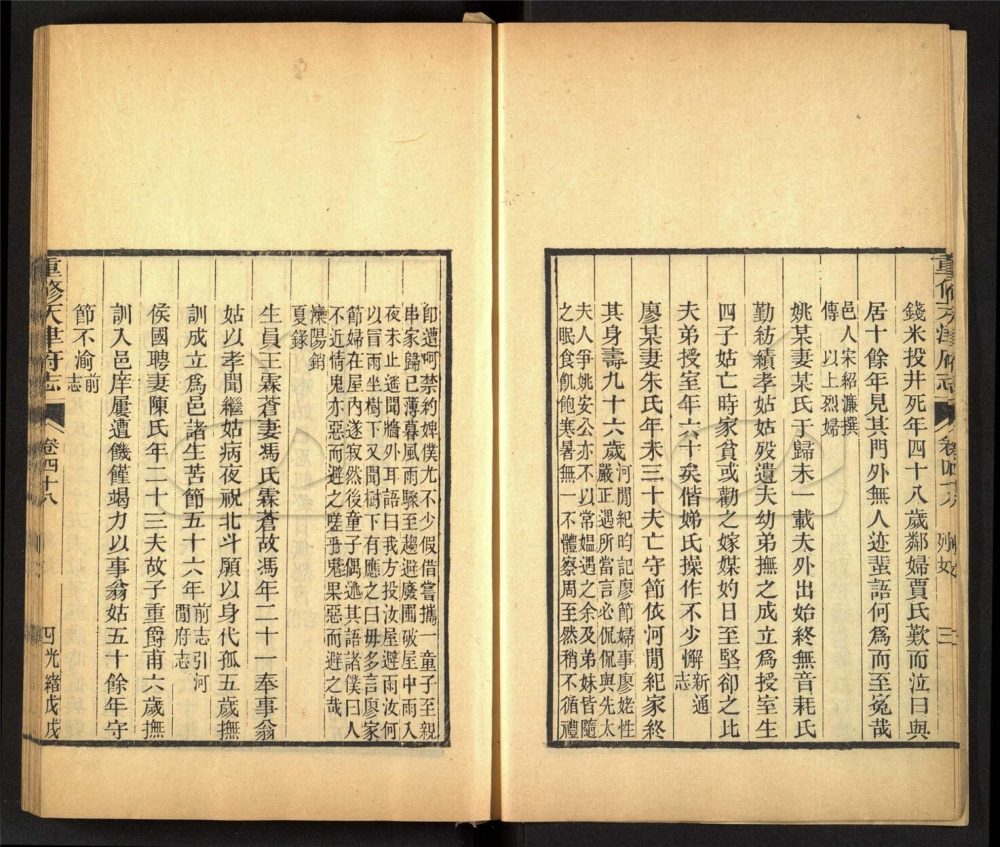 重修天津府志 卷四十八 列女 三
錢米投井死年四十八歲鄰婦賈氏歎而泣曰與
居十餘年見其門外無人迹蜚語何爲而至冤哉
邑人宋紹濂撰
傳 以上烈婦
姚某妻某氏于歸未一載夫外出始終無音耗氏
勤紡績孝姑姑歿遺夫幼弟撫之成立爲授室生
四子姑亡時家貧或勸之嫁媒妁日至堅卻之比
夫弟授室年六十矣偕娣氏操作不少懈新通
志
廖某妻朱氏年未三十夫亡守節依河閒紀家終
其身壽九十六歲河閒紀昀記廖節婦事廖姥性
嚴正遇所當言必侃侃與先太
夫人爭姚安公亦不以常媼遇之余及弟妹皆隨
之眠食飢飽寒暑無一不體察周至然稍不循禮
卽遭呵禁約婢僕尤不少假借嘗攜一童子至親
串家歸已薄暮風雨驟至趨避廢圃破屋中雨入
夜未止遙聞牆外耳語曰我方投汝屋避雨汝何
以冒雨坐樹下又聞樹下有應之曰毋多言廖家
節婦在屋內遂寂然後童子偶述其語諸僕曰人
不近情鬼亦惡而避之嗟乎鬼果惡而避之哉
灤陽銷
夏錄
生員王霖蒼妻馮氏霖蒼故馮年二十一奉事翁
姑以孝聞繼姑病夜祝北斗願以身代孤五歲撫
訓成立爲邑諸生苦節五十六年前志引河
閒府志
侯國聘妻陳氏年二十三夫故子重爵甫六歲撫
訓入邑庠屢遭饑饉竭力以事翁姑五十餘年守
節不渝前
志
重修天津府志 卷四十八 四 光緖戊戌